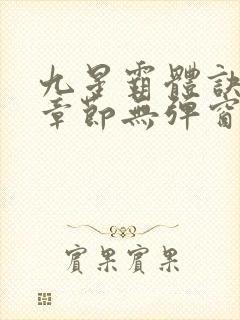 九星霸體訣
章節無彈窗
賓果賓果